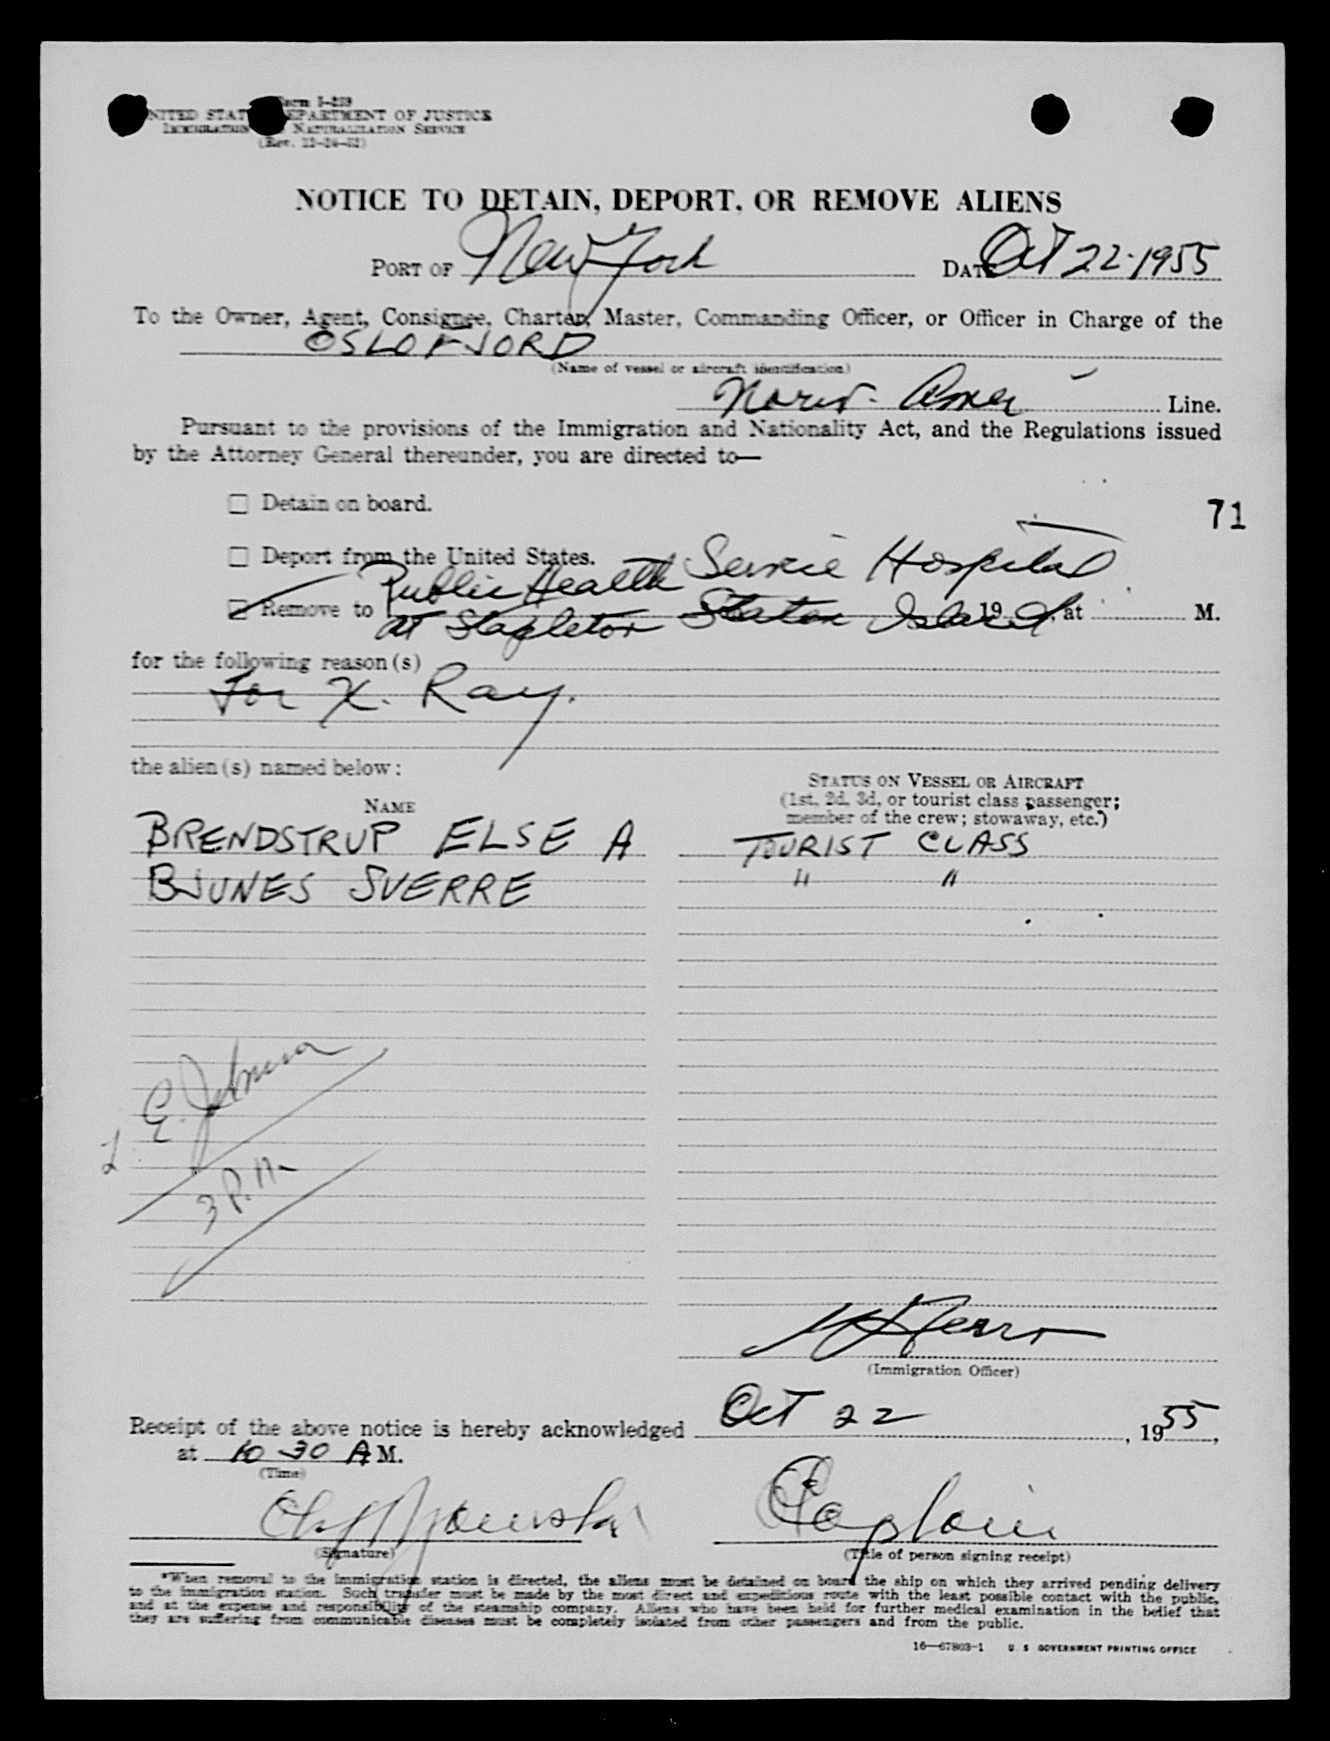 Form I-259
UNITED STATES DEPARTMENT OF JUSTICE
IMMIGRATION NATURALIZATION SERVICE
(Rev. 12-24-52)
NOTICE TO DETAIN, DEPORT, OR REMOVE ALIENS
PORT OF New York DATE Oct 22-1955
To the Owner, Agent, Consignee, Charter, Master, Commanding Officer, or Officer in Charge of the
OSLOFJORD
(Name of vessel or aircraft identification)
Norw. Amer Line.
Pursuant to the provisions of the Immigration and Nationality Act, and the Regulations issued
by the Attorney General thereunder, you are directed to—
☐ Detain on board.
71
☐ Deport from the United States.
Public Health Service Hospital
Remove to at Stapleton Staten Island 19, at M.
for the following reason(s)
For X. Ray.
the alien(s) named below:
STATUS ON VESSEL OR AIRCRAFT
(1st, 2d, 3d, or tourist class passenger;
member of the crew; stowaway, etc.)
NAME
BRENDSTRUP ELSE A TOURIST CLASS
BJUNES SVERRE " "
E. Johnson
3 P.M.
(Immigration Officer)
Receipt of the above notice is hereby acknowledged Oct 22, 1955,
at 10 30 A M.
(Time)
Captain
(Signature) (Title of person signing receipt)
*When removal to the immigration station is directed, the aliens must be detained on board the ship on which they arrived pending delivery
to the immigration station. Such transfer must be made by the most direct and expeditious route with the least possible contact with the public,
and at the expense and responsibility of the steamship company. Aliens who have been held for further medical examination in the belief that
they are suffering from communicable diseases must be completely isolated from other passengers and from the public.
16—67803-1 U. S. GOVERNMENT PRINTING OFFICE